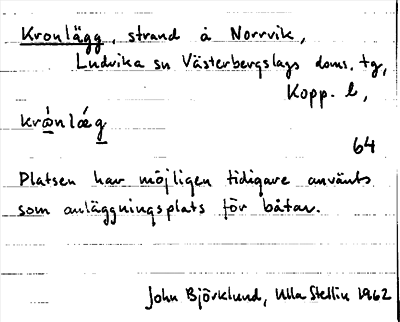 Kronlägg, strand å Norrvik,
Ludvika sn Västerbergslags doms. tg,
Kopp. l,
krǿnlǽg
64
Platsen har möjligen tidigare använts
som anläggningsplats för båtar.
John Björklund, Ulla Stellin 1962